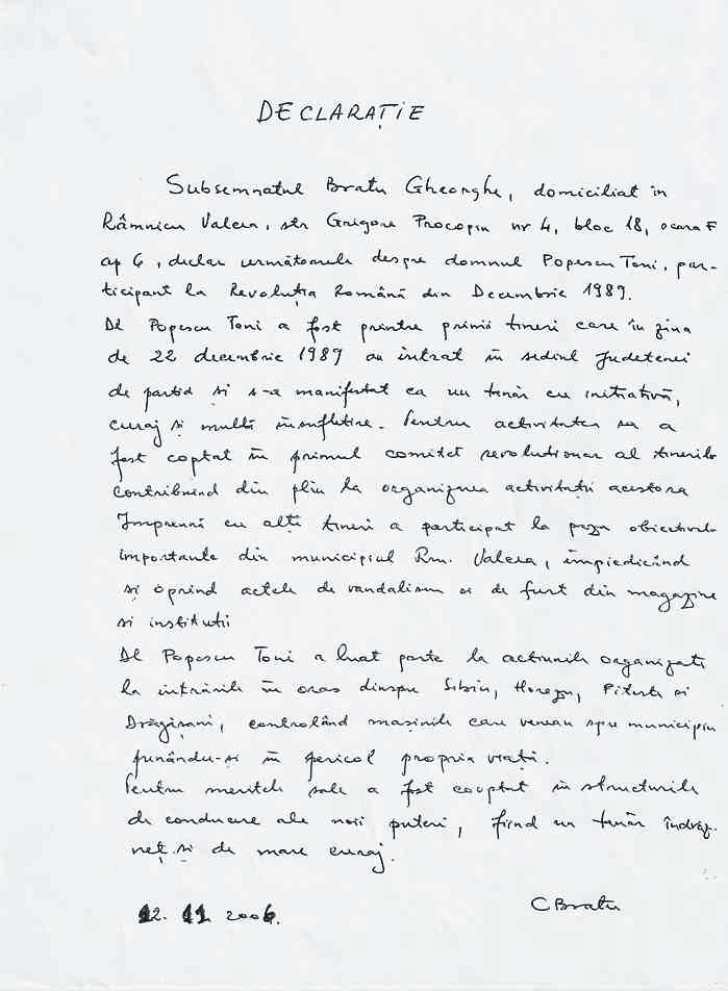 DECLARAȚIE
Subsemnatul Bratu Gheorghe, domiciliat în
Râmnicu Valcea, str Grigore Procopiu nr 4, bloc 18, scara F
ap 6, declar următoarele despre domnul Popescu Toni, par-
ticipant la Revoluția Română din Decembrie 1989.
Dl Popescu Toni a fost printre primii tineri care în ziua
de 22 decembrie 1989 au intrat în sediul Județenei
de partid și s-a manifestat ca un tânăr cu initiativă,
curaj și multă însuflețire. Pentru activitatea sa a
fost coptat în primul comitet revolutionar al tinerilor
contribuind din plin la organizarea activității acestora
Impreună cu alți tineri a participat la paza obiectivelor
importante din municipiul Rm. Valcea, împiedicând
și oprind actele de vandalism si de furt din magazine
si institutii
Dl Popescu Toni a luat parte la actiunile organizate
la intrările în oras dinspre Sibiu, Horezu, Pitesti si
Drăgășani, controlând mașinile care veneau spre municipiu
punându-și în pericol propria viață.
Pentru meritele sale a fost cooptat în structurile
de conducere ale noii puteri, fiind un tanăr îndrăz-
neț și de mare curaj.
12. 11 2006.
CBratu